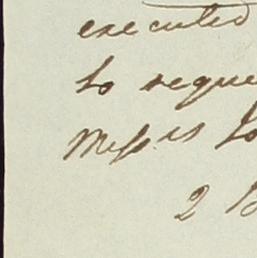 executed
to reque
Messrs Jo
2 B